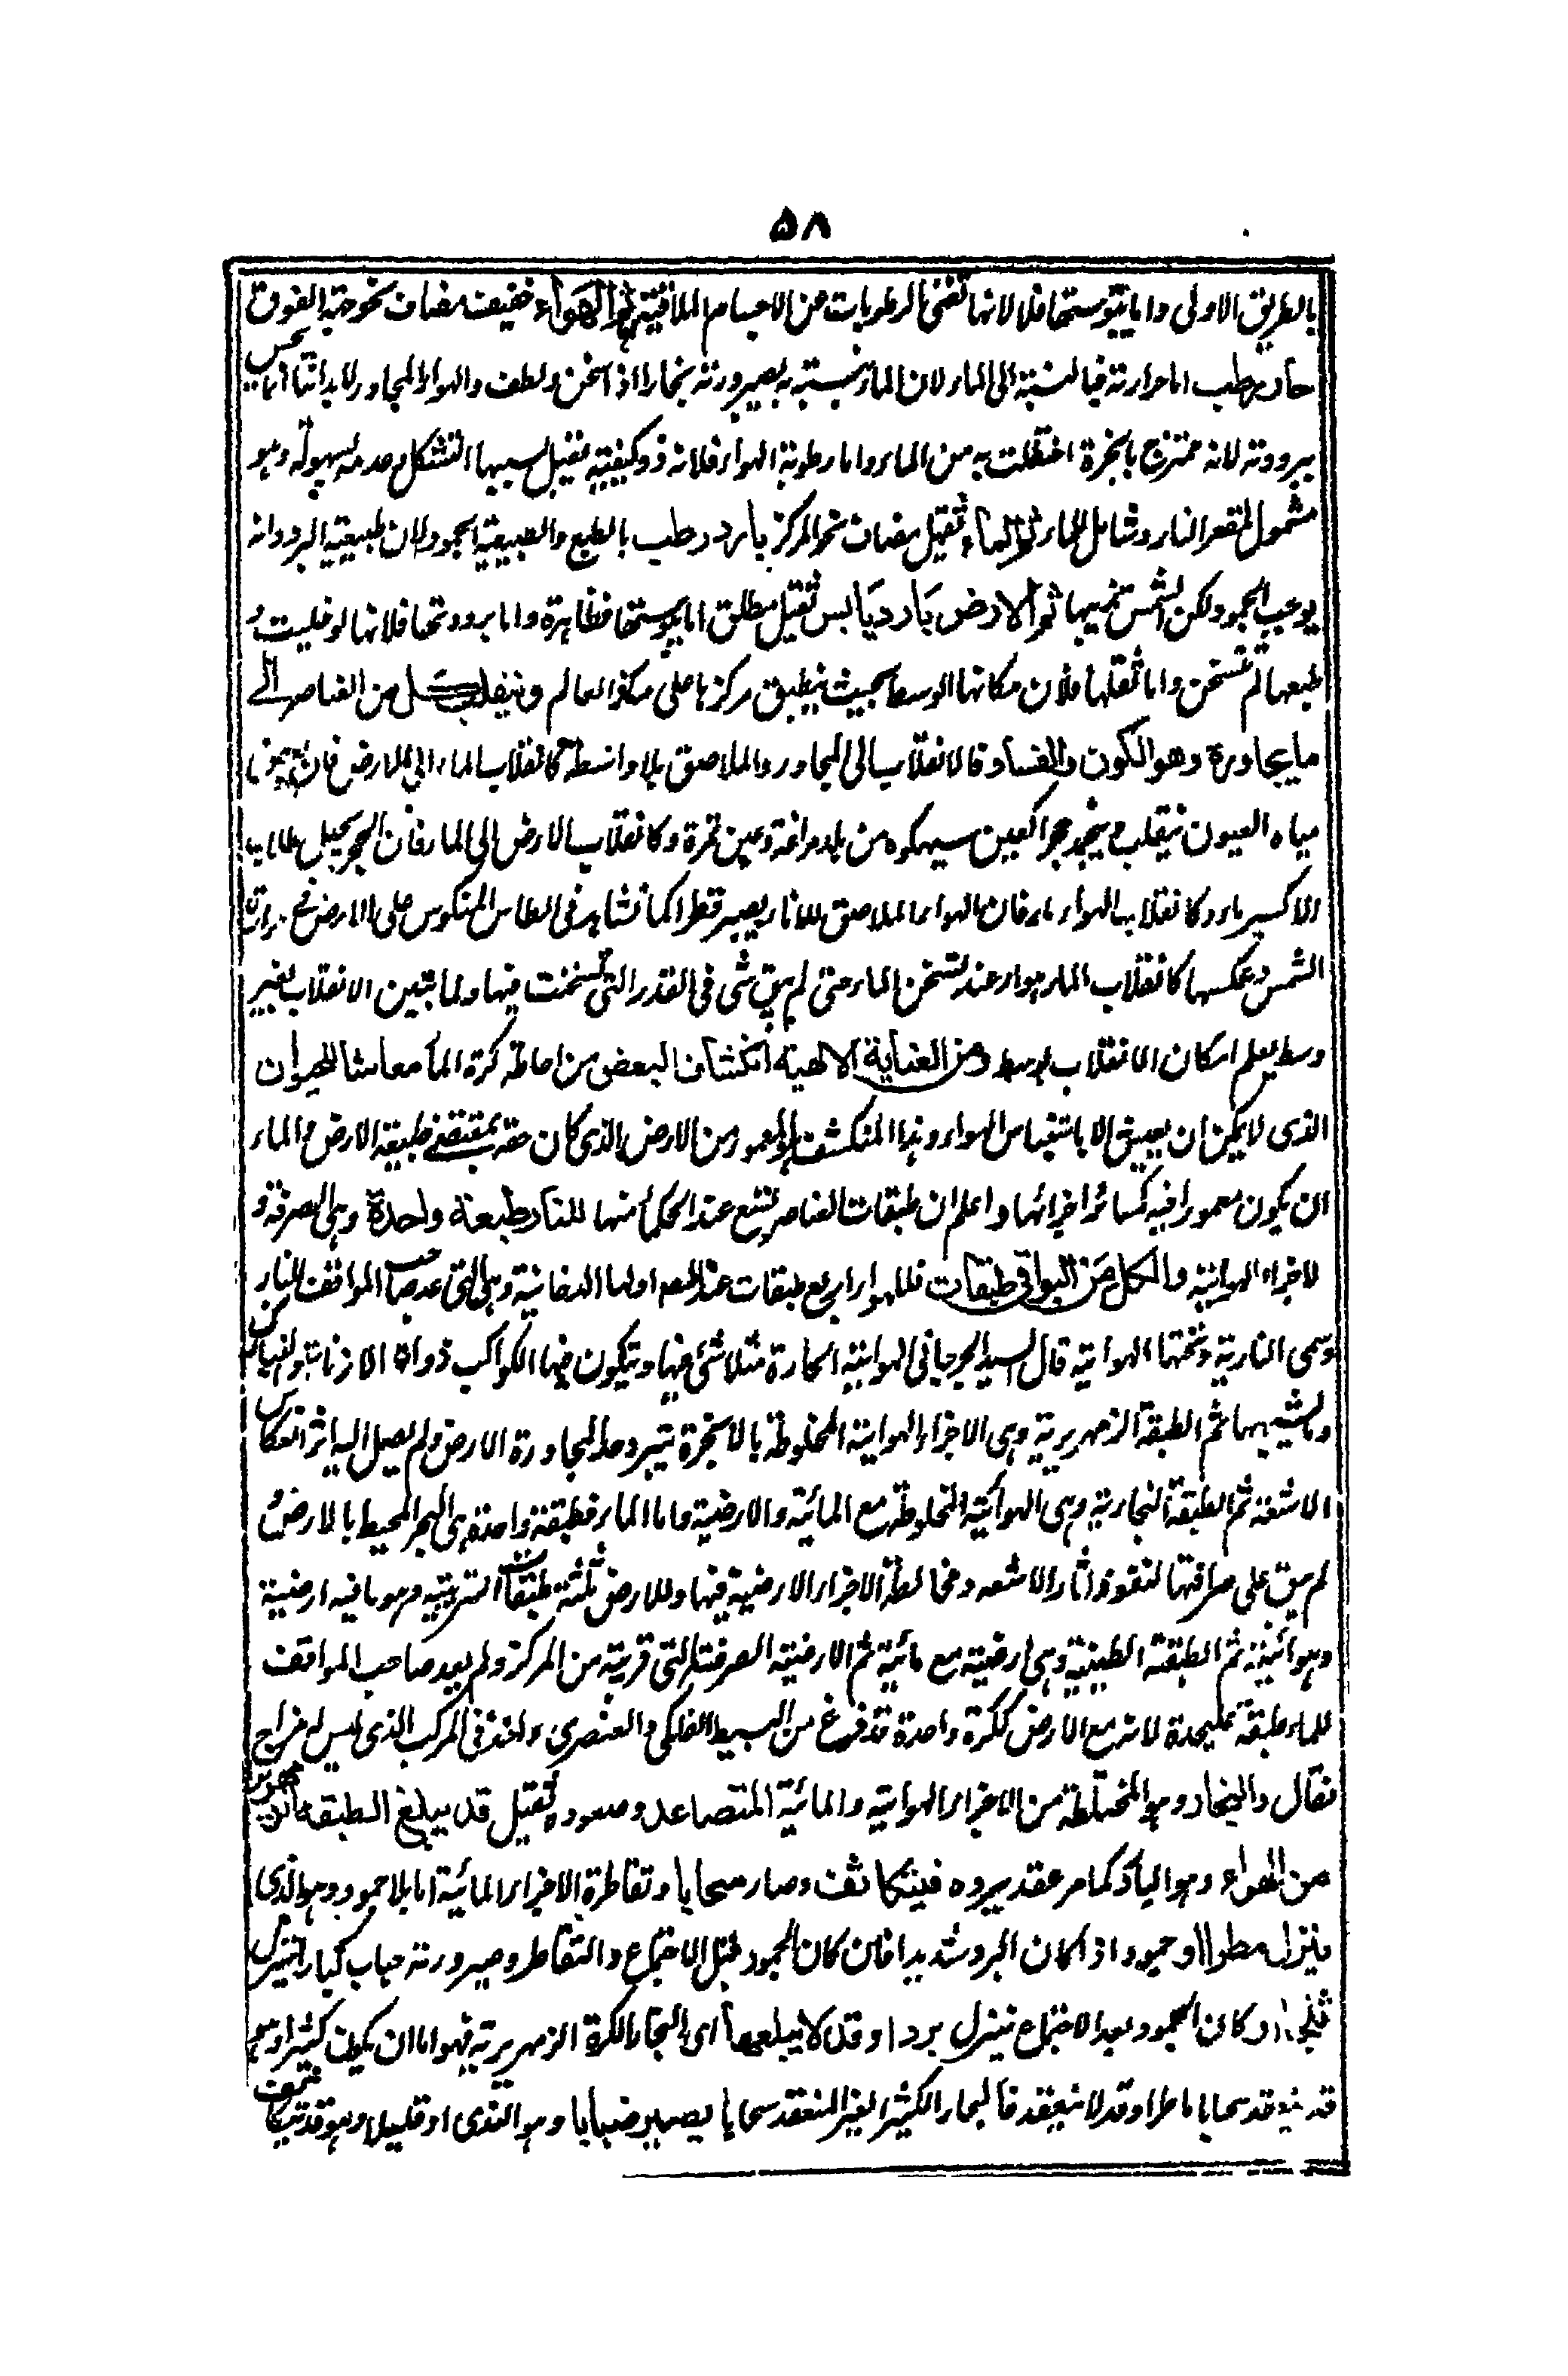 ۵۸
بالطريق الاولى واما يبوستها فلانها تفنى الرطوبات عن الاجسام الملاقية ثم الهواء خفيف مضاف نحو جهة الفوق
حار رطب اما حرارته فبالنسبة الى الماء لان الماء يتشبه به بصيرورته بخارا اذا سخن ولطف والهواء المجاور لابداننا انما نحس
ببرودته لانه ممتزج بابخرة اختلطت به من الماء واما رطوبة الهواء فلانه ذو كيفية يقبل بسببها التشكل وعدمه بسهولة وهو
مشمول لمقعر النار وشامل للماء ثم الماء ثقيل مضاف نحو المركز بارد رطب بالطبع والطبيعية الجمود لان طبيعية البرد وانه
يوجب الجمود ولكن الشمس تذيبها ثم الارض بارد يابس ثقيل مطلق اما يبوستها فظاهرة واما برودتها فلانها لو خليت و
طبعها لم تتسخن واما ثقلها فلان مكانها الوسط بحيث ينطبق مركزها على مركز العالم وينقلب كل من العناصر الى
ما يجاوره وهو الكون والفساد فالانقلاب الى المجاور والملاصق بلا واسطة كانقلاب الماء الى الارض فان بعض
مياه العيون ينقلب وينجمد حجرا كعين سيهكوه من بلد مراغة وعين تمرة وكانقلاب الارض الى الماء فان الحجر يجعل طلاب
الاكسير ماء وكانقلاب الهواء ماء فان الهواء الملاصق للاناء يصير قطرا كما نشاهد فى الطاس المنكوس على الارض فى حرارة
الشمس وعكسها كانقلاب الماء هواء عند تسخن الماء حتى لم يبق شى فى القدر التى تسخنت فيها ولما تبين الانقلاب بغير
وسط يعلم امكان الانقلاب بوسط ومن العناية الالهية انكشاف البعض من احاطة كرة الماء معاشا للحيوان
الذى لا يمكن ان يعيش الا باستنشاس الهواء وهذا المنكشف هو المعمور من الارض والذى كان حقه بمقتضى طبيعة الارض والماء
ان يكون معمورا فيه كسائر اجزائها واعلم ان طبقات العناصر تسع عند الحكماء منها للنار طبيعة واحدة وهى الصرفة و
لاجزاء الهوائية والكل من البواقى طبقات فللهواء اربع طبقات عند المص اولها الدخانية وهى التى عدها صاحب المواقف للنار
وسمى النارية وتحتها الهوائية قال السيد الجرجانى الهوائية الحارة متلاشى فيها وتتكون فيها الكواكب ذوات الاذناب والنيازك
وما يشبهها ثم الطبقة الزمهريرية وهى الاجزاء الهوائية المخلوطة بالابخرة تتبرد على مجاورة الارض ولم يصل اليه اثر انعكاس
الاشعة ثم الطبقة البخارية وهى الهوائية المخلوطة مع المائية والارضية واما الماء فطبقة واحدة هى البحر المحيط بالارض و
لم يبق على صرافتها لنفوذ اثار الاشعه ومخالطة الاجزاء الارضية فيها وللارض ثلثة طبقات التربتيه وهو ما فيه ارضية
وهوائية ثم الطبقة الطينية وهى ارضية مع مائية ثم الارضية الصرفة التى قريبة من المركز ولم يعد صاحب المواقف
للماء طبقة عليحدة لانه مع الارض ككرة واحدة قد فرغ من البسيط الفلكى والعنصرى واخذ فى المركب الذى ليس له مزاج
فقال والبخار وهو المختلطة من الاجزاء الهوائية والمائية المتصاعد وصعوده ثقيل قد يبلغ الطبقة الزمهريرية
من الهواء وهو البارد كما مر عقد ببرده فيتكاثف وصار سحابا وتقاطرة الاجزاء المائية اما بلا جمود وهو الذى
ينزل مطرا او جمود اذا كان البرد شديدا فان كان الجمود قبل الاجتماع والتقاطر وصيرورته حباب كبار انتزل
ثلجا او كان الجمود بعد الاجتماع فينزل بردا وقد لا يبلغها اى البخار الكرة الزمهريرية فهو اما ان يكون كثيرا وهو
قد ينعقد سحابا ماطرا وقد لا ينعقد فالبخار الكثير الغير المنعقد سحابا يصير ضبابا وهو الندى او قليلا وهو قد يتكاثف